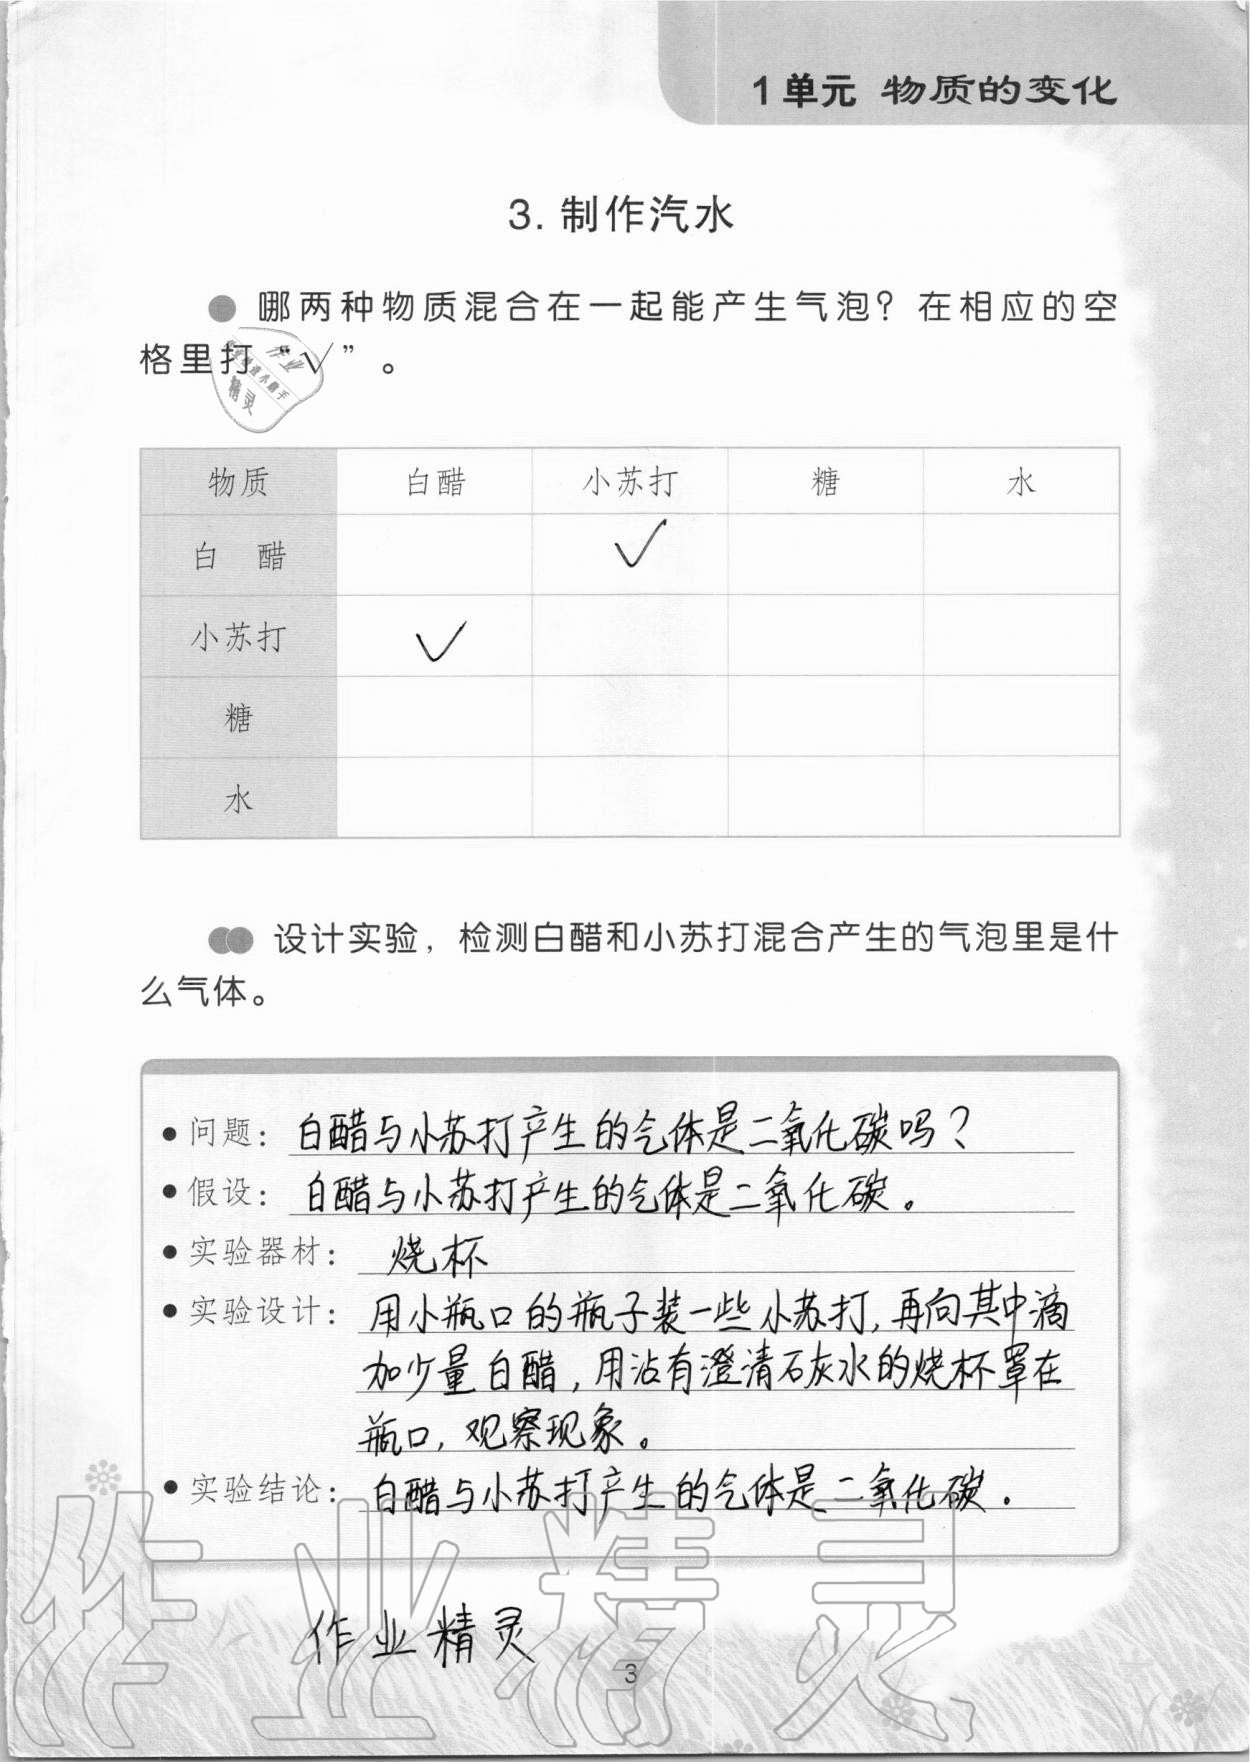 1单元 物质的变化
3. 制作汽水
哪两种物质混合在一起能产生气泡？在相应的空
格里打“√”。
作业
精灵
物质 白醋 小苏打 糖 水
白 醋 √
小苏打 √
糖
水
设计实验，检测白醋和小苏打混合产生的气泡里是什
么气体。
问题：白醋与小苏打产生的气体是二氧化碳吗？
假设：白醋与小苏打产生的气体是二氧化碳。
实验器材：烧杯
实验设计：用小瓶口的瓶子装一些小苏打，再向其中滴
加少量白醋，用沾有澄清石灰水的烧杯罩在
瓶口，观察现象。
实验结论：白醋与小苏打产生的气体是二氧化碳．
作业精灵
作业精灵
3